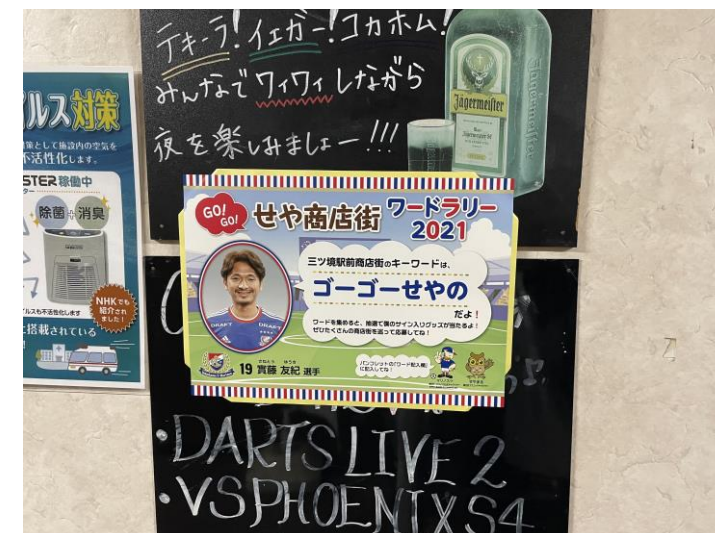 テキーラ!イエガー!コカホム!
みんなでワイワイしながら
夜を楽しみましょー!!!
Jägermeister
ルス対策
策として施設内の空気を
不活性化します。
STER稼働中
除菌+消臭
NHKでも
紹介され
ました!
ルスも不活性化します
に搭載されている
GO!
GO!
せや商店街
ワードラリー
2021
三ツ境駅前商店街のキーワードは、
ゴーゴーせやの
だよ!
ワードを集めると、抽選で僕のサイン入りグッズが当たるよ!
ぜひたくさんの商店街を巡って応募してね!
パンフレットの「ワード記入欄」
に記入してね!
さねとう ゆうき
19 實藤 友紀 選手
・DARTS LIVE 2
・VSPHOENIX S4